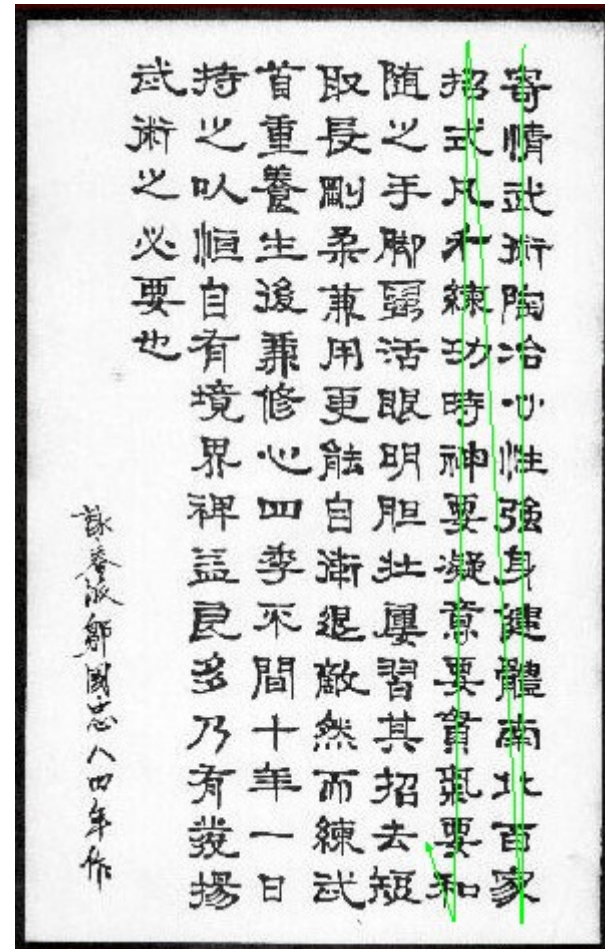 寄情武術陶冶心性強身健體南北百家
招式凡練功時神要凝意要貫氣要和
随之手脚靈活眼明胆壯屢習其招去短
取長剛柔兼用更能自衛退敵然而練武
首重養生後兼修心四季不間十年一日
持之以恒自有境界裨益良多乃有發揚
武術之必要也
詠春派鄒國忠八四年作